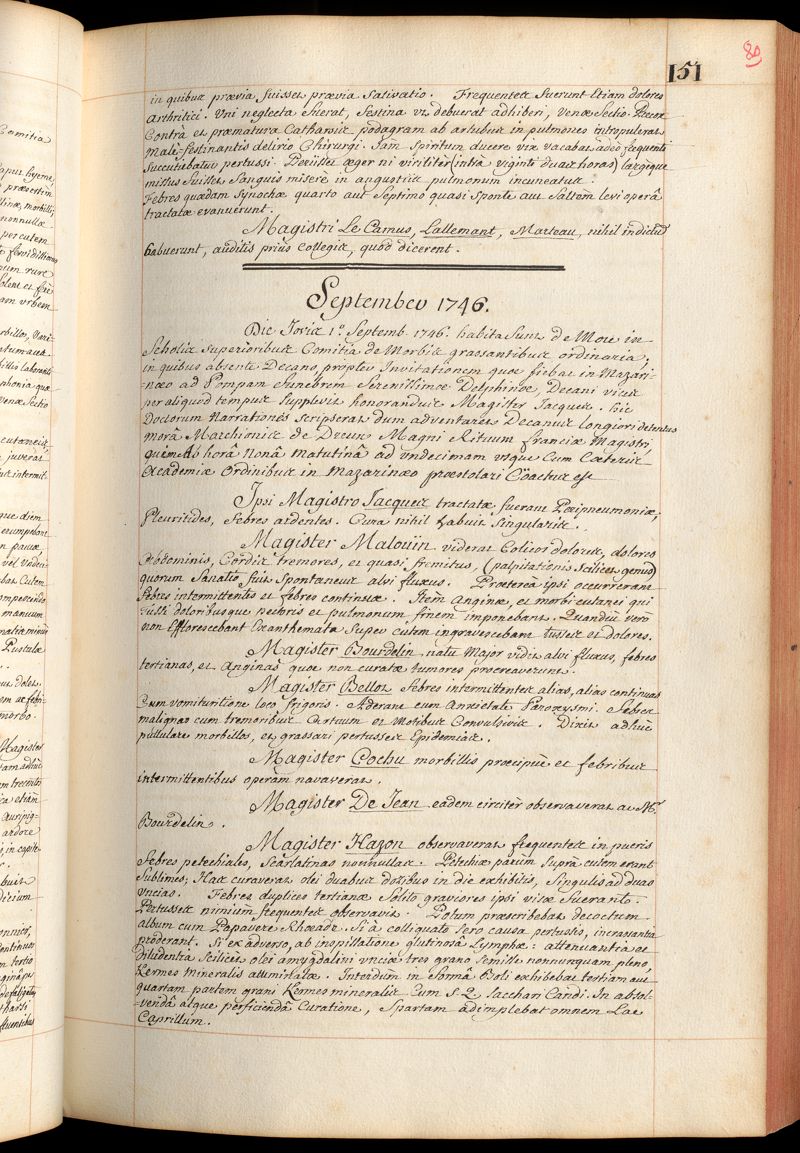 80
151
in quibus prævia fuisset prævia Salivatio. Frequentes fuerunt Etiam dolores
Arthritici. Uni neglecta fuerat, festina ut debuerat adhiberi, venæ Sectio.
Contrà et præmatura Catharsis podagram ab artubus in pulmones intropulerat
malè festinantis delirio Chirurgi. Jam Spiritum ducere vix vacabat adeò frequenti
Succutiebatur pertussi. Periisset æger ni viriliter (intrà viginti duas horas) largeque
missus fuisset Sanguis miserè in angustiis pulmonum incuneatus.
Febres quædam Synochæ quarto aut Septimo quasi Sponte aut Saltem levi operâ
tractatæ evanuerunt.
Magistri Le Camus, Lallemant, Marteau, nihil indictũ
habuerunt, auditis prius Collegis, quod dicerent.
September 1746.
Die Jovis 1ª. Septemb. 1746. habita Sunt de More in
Scholis Superioribus Comitia de Morbis grassantibus ordinaria;
in quibus absente Decano, propter Invitationem quæ fiebat in Mazari-
næo ad Pompam funebrem Serenissimæ Delphinæ, Decani vices
per aliquod tempus Supplevit honorandus Magister Jacques. Hic
Doctorum Narrationes scripserat dum adventaret Decanus longiori detentus
morâ Marchionis de Dreux Magni Rituum franciæ Magistri,
quem Ab horâ Nonâ matutinâ ad Undecimam usque Cum Cæteris
Academiæ Ordinibus in Mazarinæo præstolari Coactus est.
Ipsi Magistro Jacques tractatæ fuerant Peripneumoniæ,
Pleuritides, febres ardentes. Cura nihil habuit Singularis.
Magister Maloüin viderat Colicos dolores, dolores
Abdominis, Cordis tremores, et quasi fremitus, (palpitationis Scilicet genus)
quorum Sanatio fuit Spontaneus alvi fluxus. Prætereà ipsi occurrerant
febres intermittentes et febres continuæ. Item Anginæ, et morbi cutanei qui
tussi doloribusque pectoris et pulmonum finem imponebant. Quandiù verò
non Efflorescebant Exanthemata Super cutem ingravescebant tusses et dolores.
Magister Bourdelin natu Major vidit alvi fluxus, febres
tertianas, et Anginas quæ non curatæ tumores procreaverunt.
Magister Bellot febres intermittentes alias, alias continuas
Cum vomituritione loco frigoris. Aderant cum Anxietate Paroxysmi. Febres
malignas cum tremoribus Artuum et Motibus Convulsivis. Dixit adhuc
pullulare morbillos, et grassari pertusses Epidemicas.
Magister Cochu morbillis præcipuè et febribus
intermittentibus operam navaverat.
Magister De Jean eadem circiter observaverat ac Mr.
Bourdelin.
Magister Hazon observaverat frequentes in pueris
febres petechiales, Scarlatinas nonnullas. Petechiæ parùm Suprà cutem erant
Sublimes; Has curaverat olei duabus dosibus in die exhibitis, Singulis ad duas
Uncias. Febres duplices tertianæ Solito graviores ipsi visæ fuerant.
Pertusses nimium frequentes observavit. Potum præscribebat decoctum
album cum Papavere Rhœade. Si à colliquato Sero causa pertussis, incrassantia
proderant. Si ex adverso, ab inspissatione glutinosâ Lymphæ: attenuantia et
diluentia Scilicet olei amygdalini unciæ tres grano Semisse nonnunquam pleno,
Kermes mineralis assimilatæ. Interdum in formâ Boli exhibebat tertiam aut
quartam partem grani Kermes mineralis Cum S. Q. Sacchari Candi. In absol-
vendâ atque perficiendâ Curatione, Spartam adimplebat omnem Lac
Caprillum.